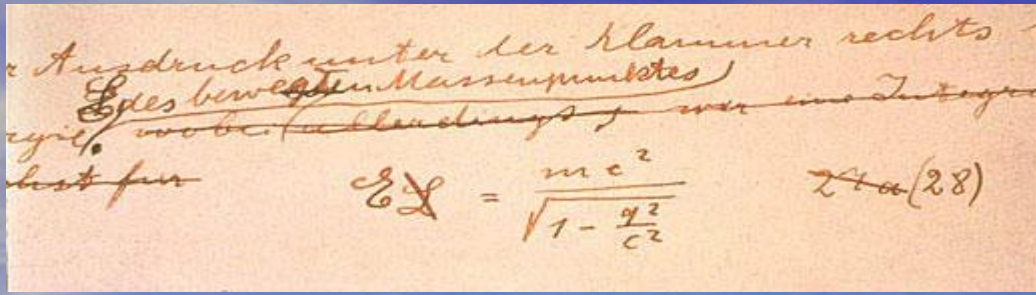 r Ausdruck unter der Klammer rechts
E des bewegten Massenpunktes
rgie, wobei (allerdings, wer eine Integr
chst für
E L = mc² / √(1 - q²/c²) 24a (28)